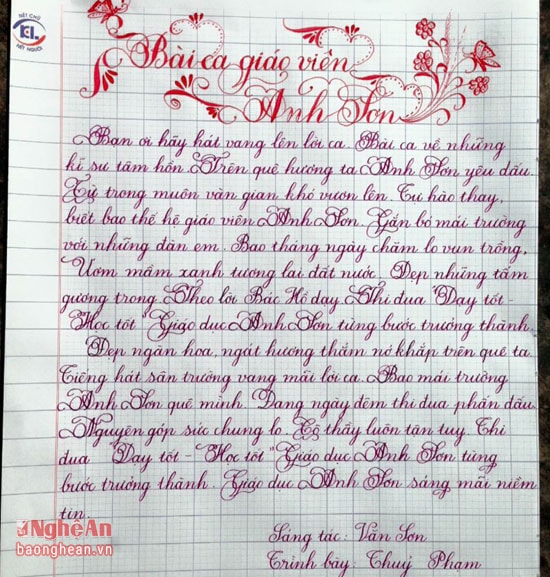 NÉT CHỮ
EL
NẾT NGƯỜI
Bài ca giáo viên
Anh Sơn
Bạn ơi hãy hát vang lên lời ca. Bài ca về những
kĩ sư tâm hồn. Trên quê hương ta Anh Sơn yêu dấu.
Từ trong muôn vàn gian khó vươn lên. Tự hào thay,
biết bao thế hệ giáo viên Anh Sơn. Gắn bó mái trường
với những đàn em. Bao tháng ngày chăm lo vun trồng,
Ươm mầm xanh tương lai đất nước. Đẹp những tấm
gương trong. Theo lời Bác Hồ dạy. Thi đua "Dạy tốt -
Học tốt". Giáo dục Anh Sơn từng bước trưởng thành.
Đẹp ngàn hoa, ngát hương thắm nở khắp trên quê ta.
Tiếng hát sân trường vang mãi lời ca. Bao mái trường
Anh Sơn quê mình. Đang ngày đêm thi đua phấn đấu.
Nguyện góp sức chung lo. Cô thầy luôn tận tụy. Thi
đua "Dạy tốt - Học tốt". Giáo dục Anh Sơn từng
bước trưởng thành. Giáo dục Anh Sơn sáng mãi niềm
tin.
Sáng tác: Văn Sơn
Trình bày: Thuỷ Phạm
Nghệ An
baonghean.vn